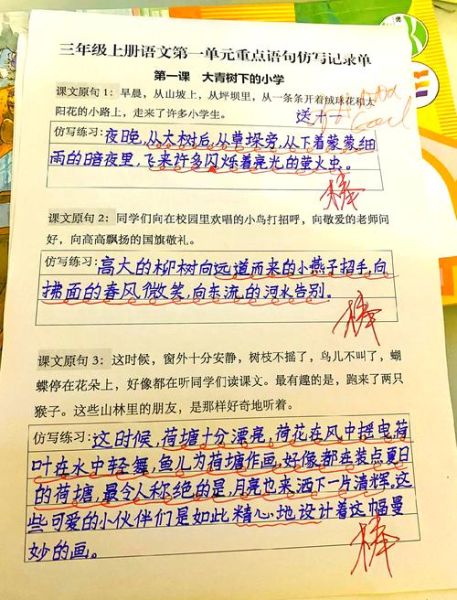 三年级上册语文第一单元重点语句仿写记录单
第一课 大青树下的小学
课文原句 1：早晨，从山坡上，从坪坝里，从一条条开着绒球花和太
阳花的小路上，走来了许多小学生。
仿写练习：夜晚，从大树后，从草垛旁，从下着蒙蒙细
雨的暗夜里，飞来许多闪烁着亮光的萤火虫。
棒
课文原句 2：同学们向在校园里欢唱的小鸟打招呼，向敬爱的老师问
好，向高高飘扬的国旗敬礼。
仿写练习：高大的柳树向远道而来的小燕子招手，向
拂面的春风微笑，向东流的河水告别。
棒
课文原句 3：这时候，窗外十分安静，树枝不摇了，鸟儿不叫了，蝴
蝶停在花朵上，好像都在听同学们读课文。最有趣的是，跑来了两只
猴子。这些山林里的朋友，是那样好奇地听着。
仿写练习：这时候，荷塘十分漂亮，荷花在风中摇曳，荷
叶在水中轻舞，鱼儿为荷塘作画，好像都在装点夏日
的荷塘，最令人称绝的是，月亮也来洒下一片清辉，这
些可爱的小伙伴们是如此精心地设计着这幅曼
妙的画。
棒